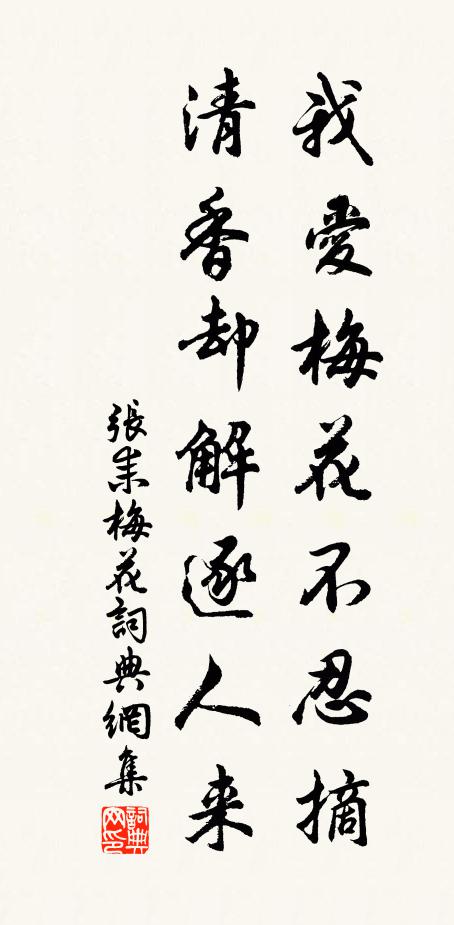 我愛梅花不忍摘
清香却解逐人来
張耒梅花詞典網集
詞典网印